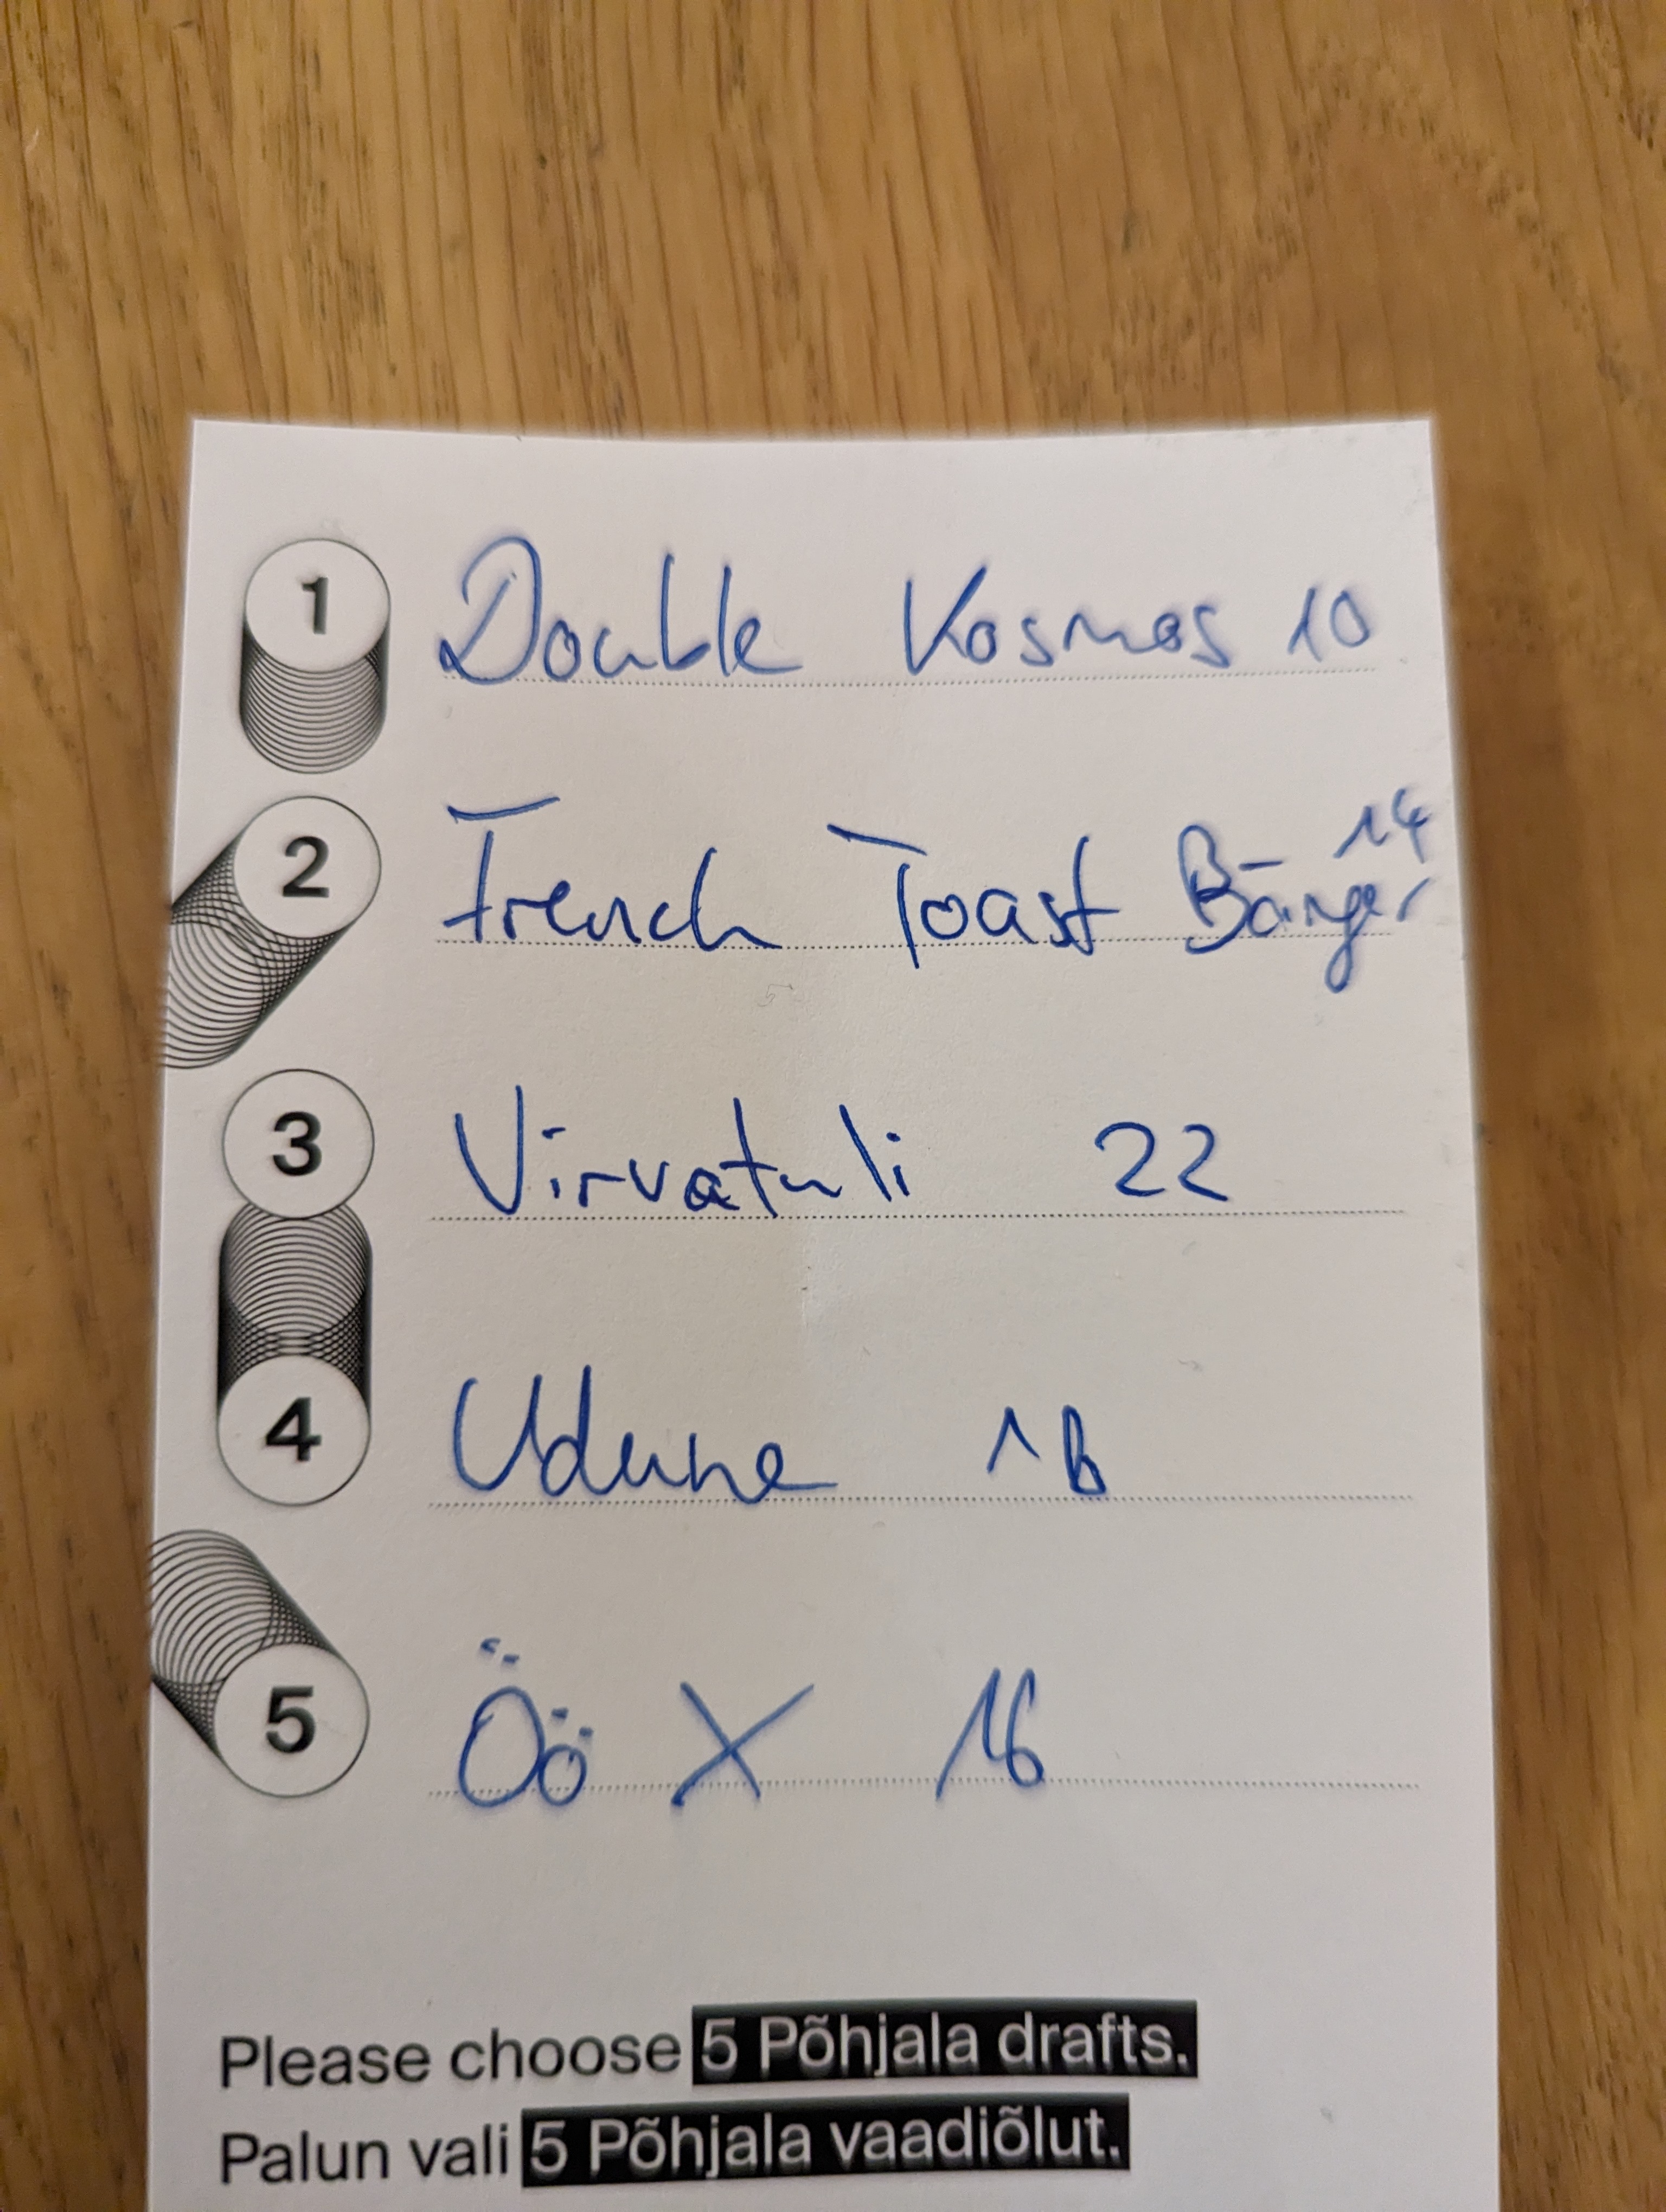 1 Double Kosmos 10
2 French Toast Bänger 14
3 Virvatuli 22
4 Udune 18
5 Öö X 16
Please choose 5 Põhjala drafts.
Palun vali 5 Põhjala vaadiõlut.